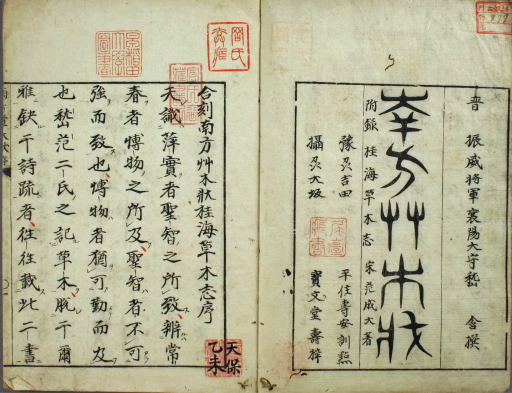 晋 振威将軍襄陽大守嵆 含撰
南方艸木状
附錄 桂海草木志 宋范成大著
豫刕吉田 平住專安訓點
攝刕大坂 寶文堂壽梓
合刻南方艸木狀桂海草木志序
夫識萍實者聖智之所致辨常
春者博物之所及聖智者不可
強而致也博物者猶可勤而及
也嵆范二氏之記草木脱于爾
雅鈌于詩疏者往往載此二書
天保
乙未